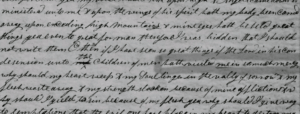 ministered unto me & upon the wings of his spirit hath my body been carried
away upon exceeding high Mountains & mine eyes hath beheld great
things yea even to great for man therefore I was bidden that I should
not write them O then if I have seen so great things if the Lord in his con
descension unto the Children of men hath visited me in so much mercy
why should my heart weep & my Soul linger in the valley of sorrow & my
flesh waste away & my strength slacken because of mine afflictions &
why should I yield to sin because of my flesh yea why should I give way
to temptations that the evil one have place